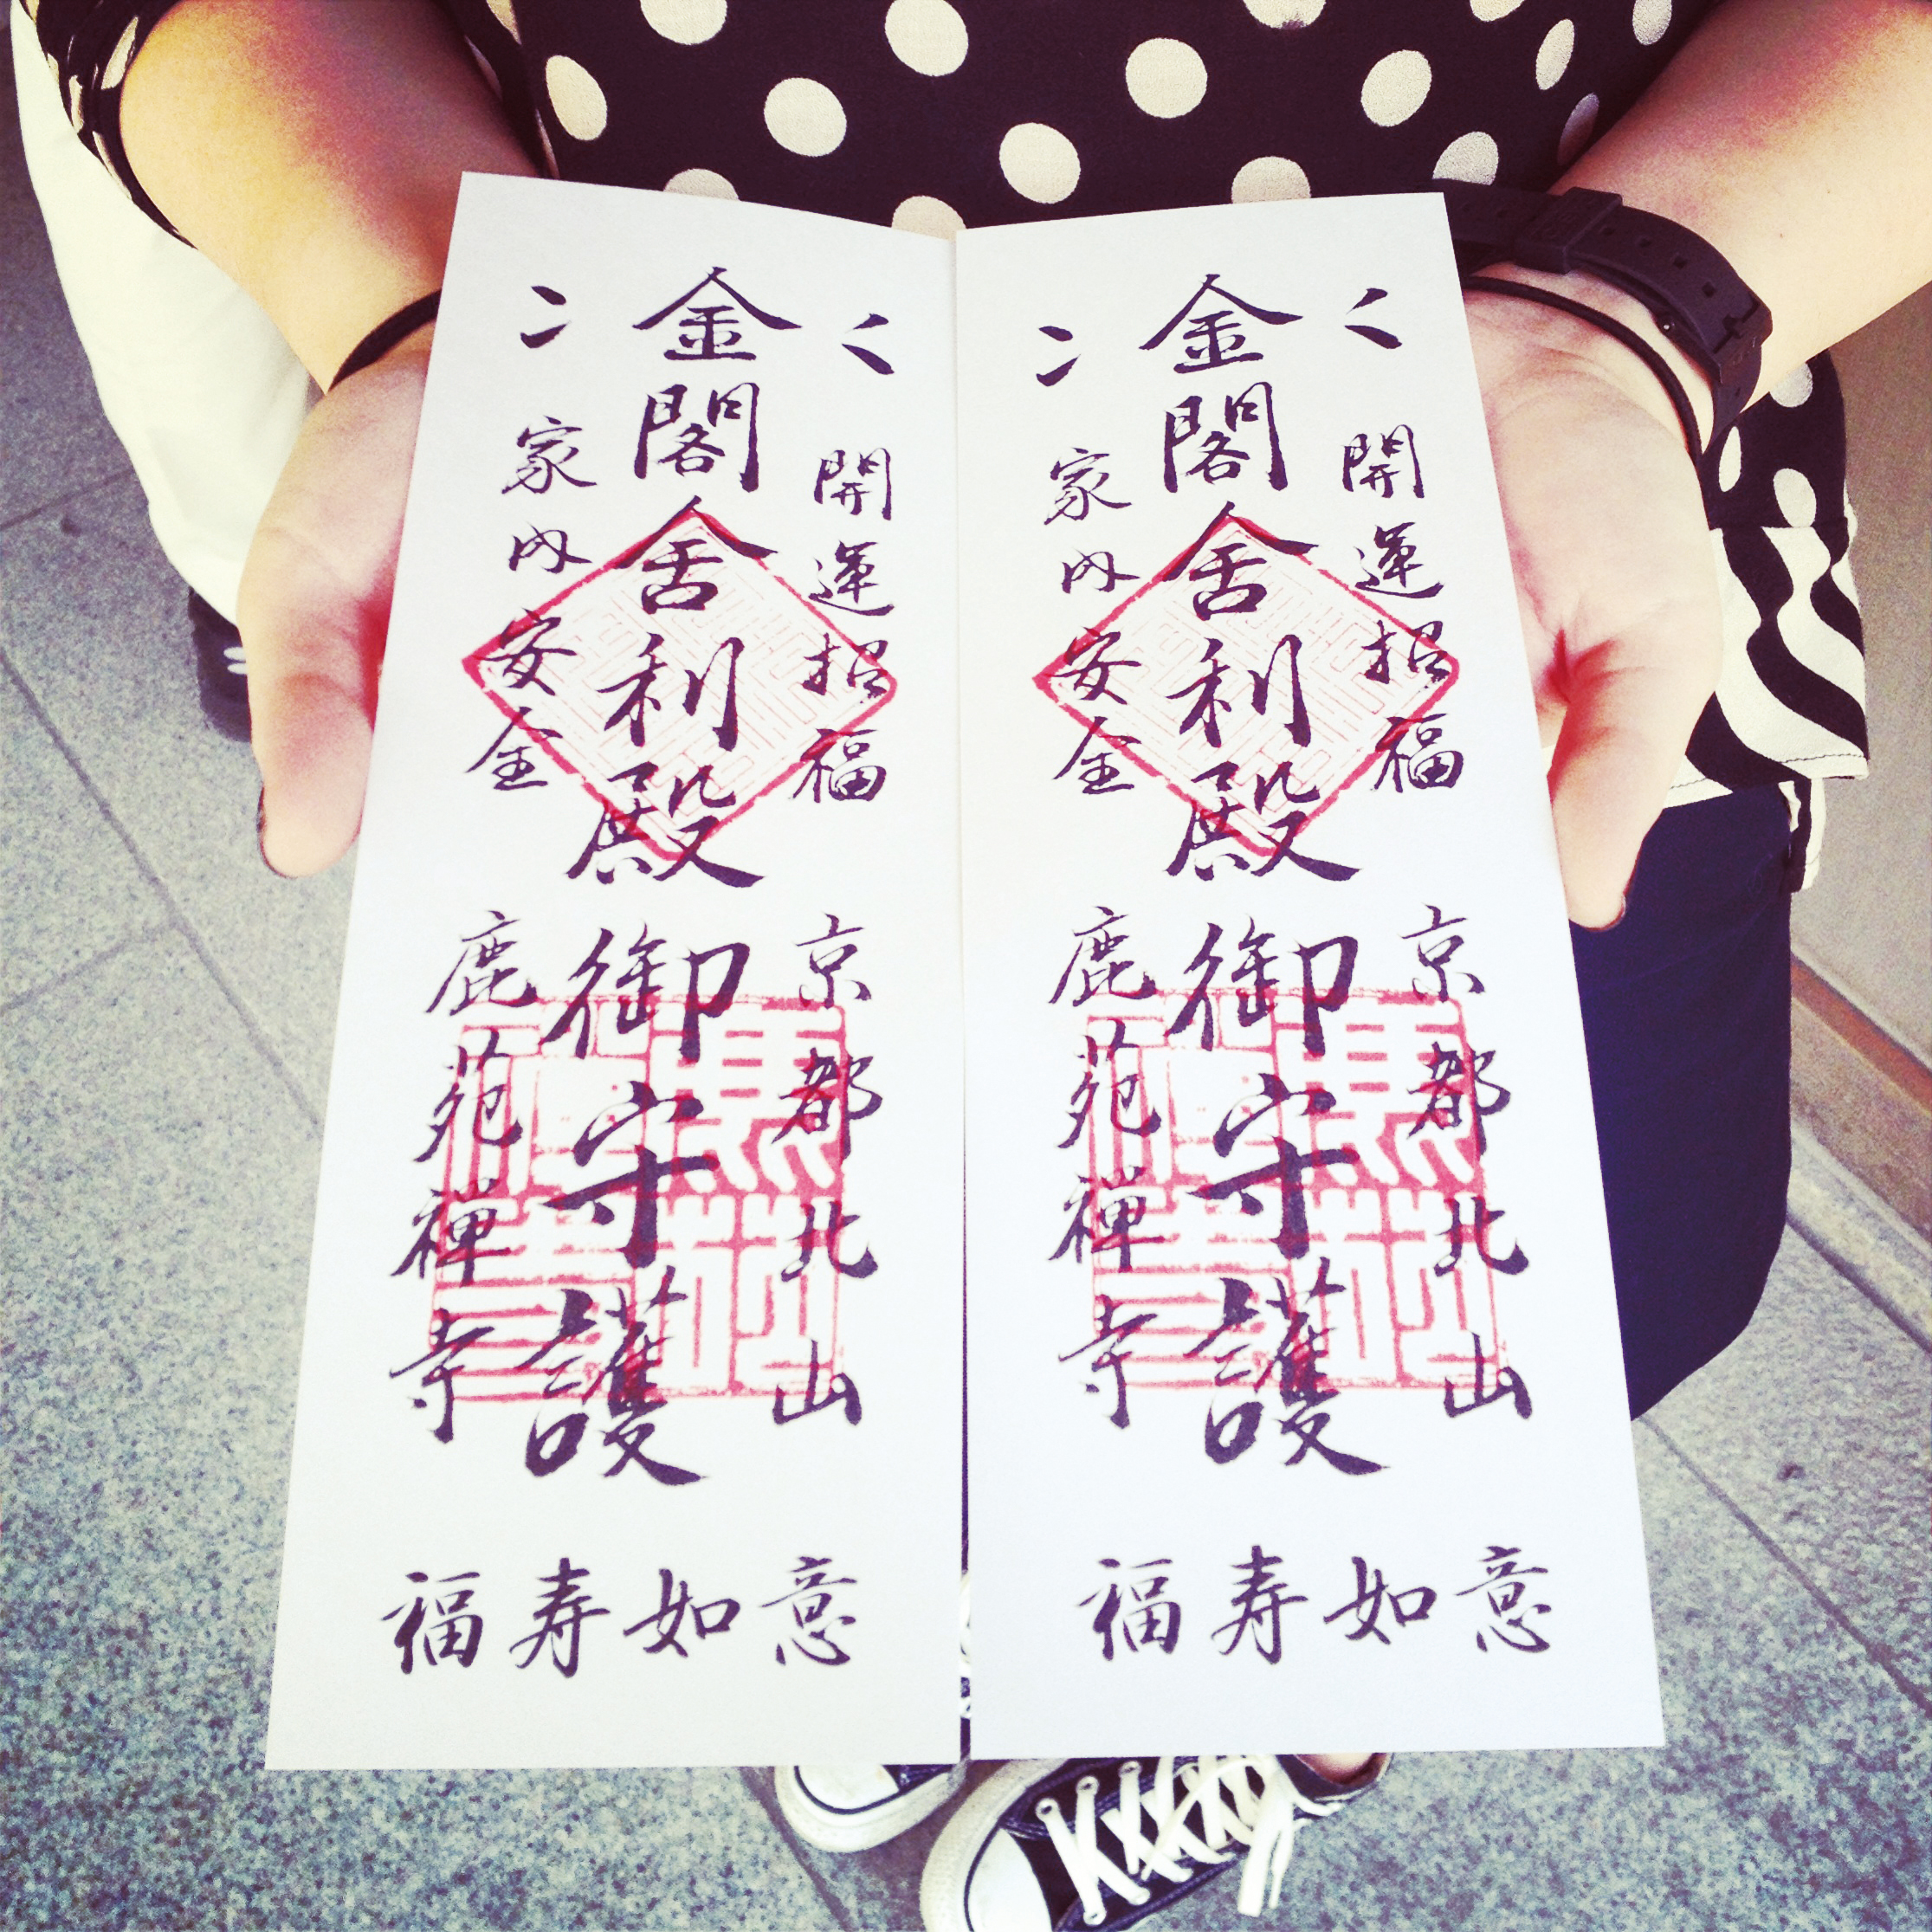 金閣舎利殿御守護
開運招福
家内安全
京都北山
鹿苑禅寺
福寿如意
金閣舎利殿御守護
開運招福
家内安全
京都北山
鹿苑禅寺
福寿如意